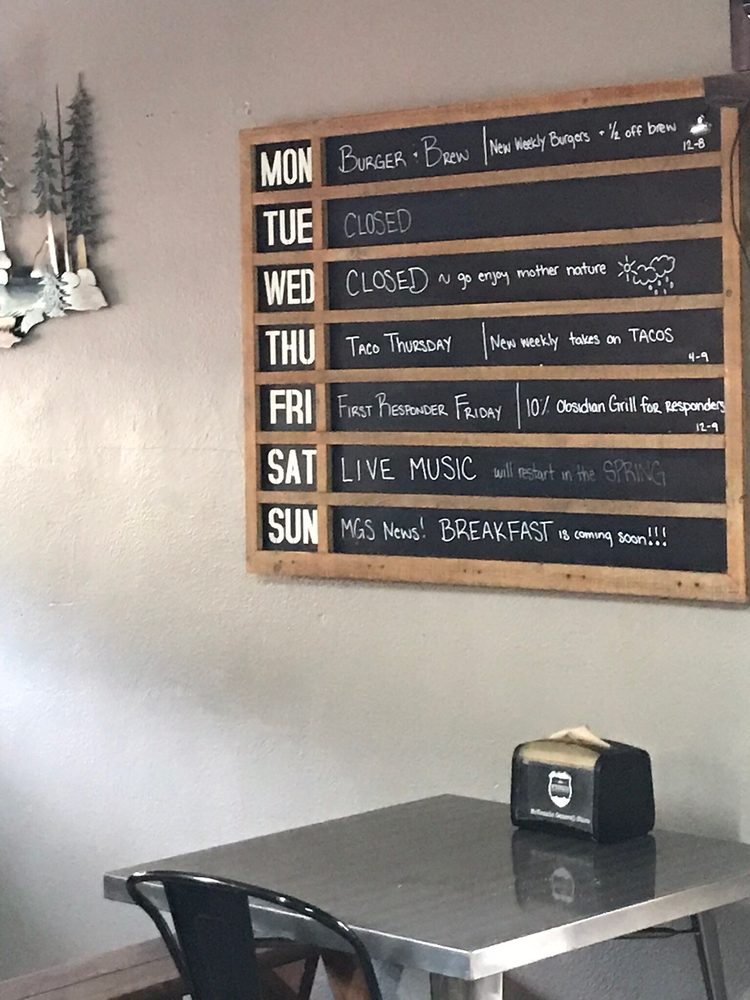 MON BURGER + BREW | New Weekly Burgers + 1/2 off brew
12-8
TUE CLOSED
WED CLOSED ~ go enjoy mother nature
THU TACO THURSDAY | New weekly takes on TACOS
4-9
FRI FIRST RESPONDER FRIDAY | 10% Obsidian Grill for Responders
12-9
SAT LIVE MUSIC will restart in the SPRING
SUN MGS News! BREAKFAST is coming soon!!!
General Store